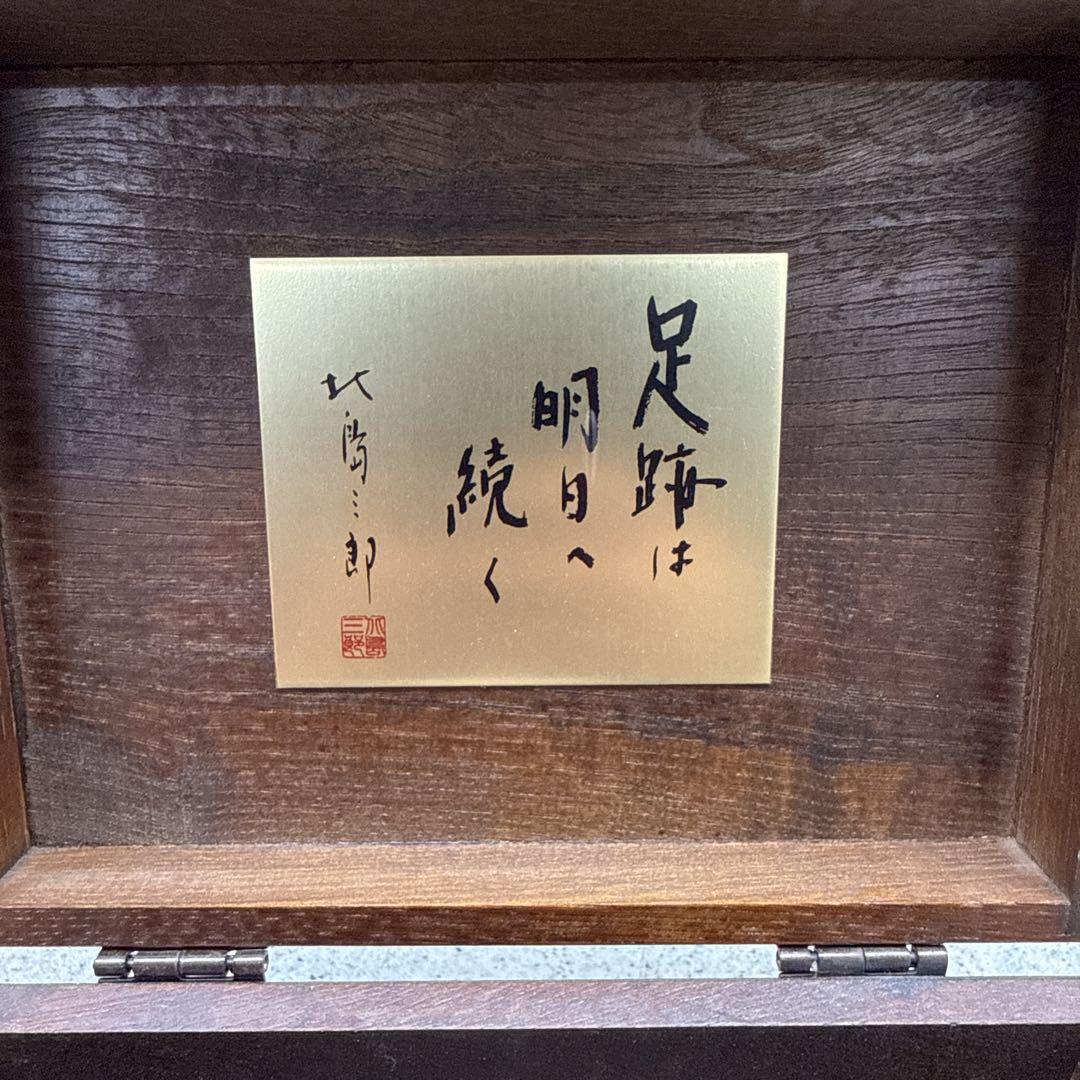 足跡は
明日へ
続く
北島三郎
北島
三郎